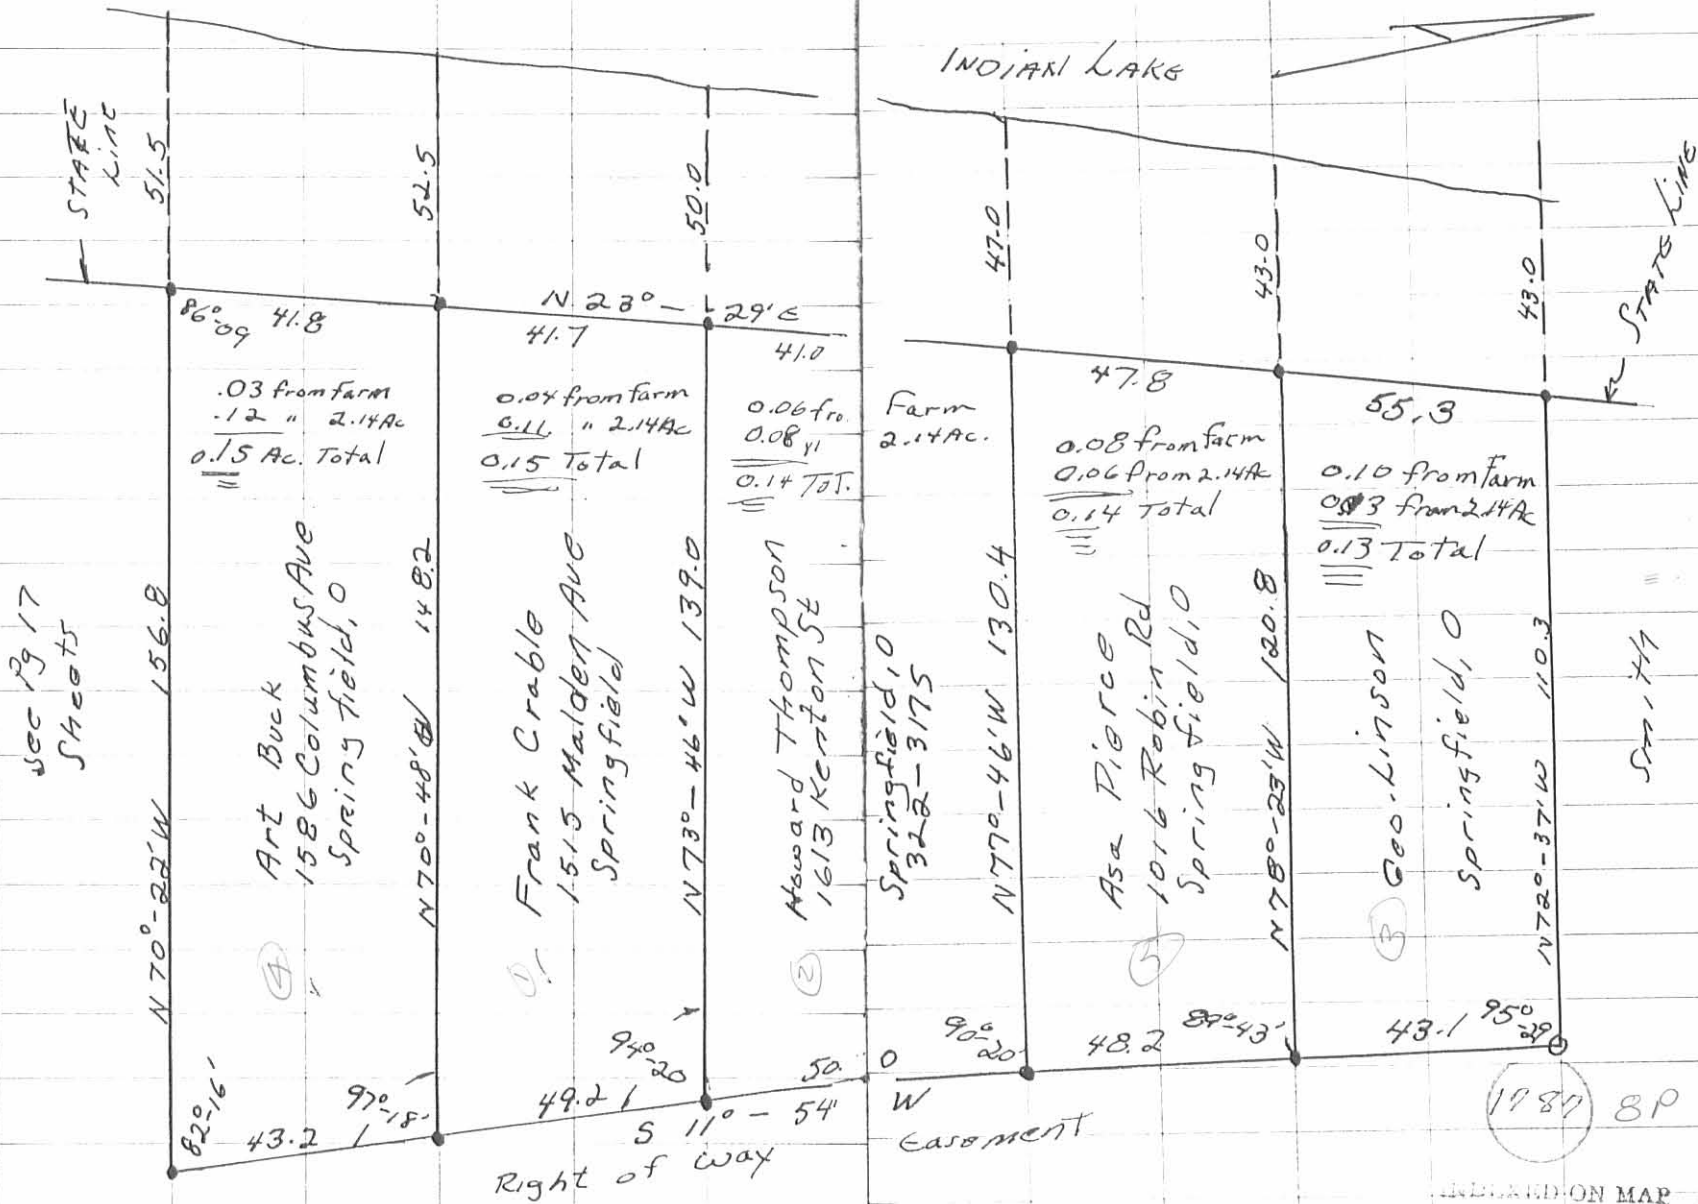 INDIAN LAKE
STATE
Line
51.5
52.5
50.0
47.0
43.0
43.0
STATE LINE
86°-09
41.8
N 23° - 29' E
41.7
41.0
47.8
55.3
.03 from farm
.12 " 2.14Ac
0.15 Ac. Total
0.04 from farm
0.11 " 2.14Ac
0.15 Total
0.06 fro.
0.08 "
0.14 TOT.
Farm
2.14Ac.
0.08 from farm
0.06 from 2.14Ac
0.14 Total
0.10 from Farm
from 2.14Ac
0.13 Total
See Pg 17
Sheets
N 70°-22'W 156.8
Art Buck
1586 Columbus Ave
Springfield, O
N 70°-48' W 148.2
Frank Crable
1515 Malden Ave
Springfield
N 73°-46'W 139.0
Howard Thompson
1613 Kenton St
Springfield, O
322-3175
N 77°-46'W 130.4
Asa Pierce
1016 Robin Rd
Springfield, O
N 78°-23'W 120.8
Geo. Linson
Springfield, O
N 72°-37'W 110.3
Smith
4
1
2
5
3
82°-16'
43.2
97°-18'
49.2
94°-20
50.0
90°-20'
48.2
89°-43'
43.1
95°-29
S 11° - 54' W
Right of Way Easement
1787
8P
INDEXED ON MAP